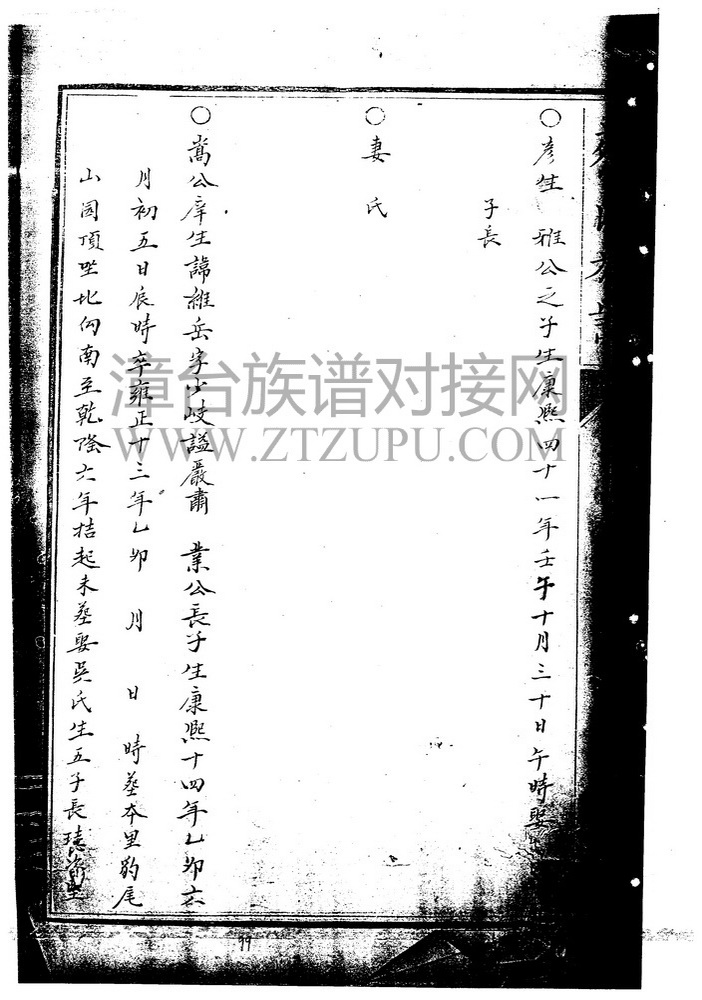 ○彦生 雅公之子生康熙四十一年壬午十月三十日午時娶
子長
○妻氏
○嵩公庠生諱維岳字少岐謚嚴肅 業公長子生康熙十四年乙卯六
月初五日辰時卒雍正十三年乙卯 月 日 時葬本里豹尾
山園頂坐北向南至乾隆六年拮起未葬娶吳氏生五子長
漳台族谱对接网
WWW.ZTZUPU.COM
99